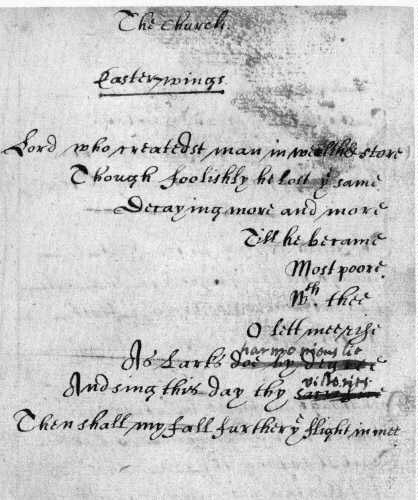 The Church.
Easter wings.
Lord who createdst man in wealth & store
Though foolishly he lost yᵉ same
Decaying more and more
Till he became
Most poore.
Wᵗʰ. thee
O lett mee rise
harmoniouslie
As Larks doe by degree
victories
And sing this day thy
Then shall my fall further yᵉ flight in mee